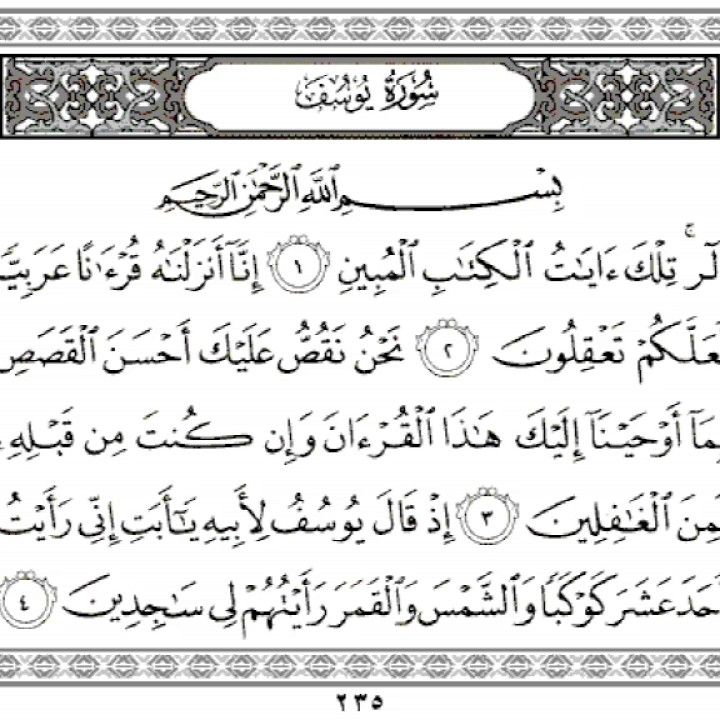 سُورَةُ يُوسُفَ
بِسْمِ اللَّهِ الرَّحْمَٰنِ الرَّحِيمِ
لٓرۚ تِلْكَ ءَايَٰتُ ٱلْكِتَٰبِ ٱلْمُبِينِ ١ إِنَّآ أَنزَلْنَٰهُ قُرْءَٰنًا عَرَبِيًّ
عَلَّكُمْ تَعْقِلُونَ ٢ نَحْنُ نَقُصُّ عَلَيْكَ أَحْسَنَ ٱلْقَصَصِ
بِمَآ أَوْحَيْنَآ إِلَيْكَ هَٰذَا ٱلْقُرْءَانَ وَإِن كُنتَ مِن قَبْلِهِۦ
مِنَ ٱلْغَٰفِلِينَ ٣ إِذْ قَالَ يُوسُفُ لِأَبِيهِ يَٰٓأَبَتِ إِنِّى رَأَيْتُ
حَدَ عَشَرَ كَوْكَبًا وَٱلشَّمْسَ وَٱلْقَمَرَ رَأَيْتُهُمْ لِى سَٰجِدِينَ ٤
٢٣٥